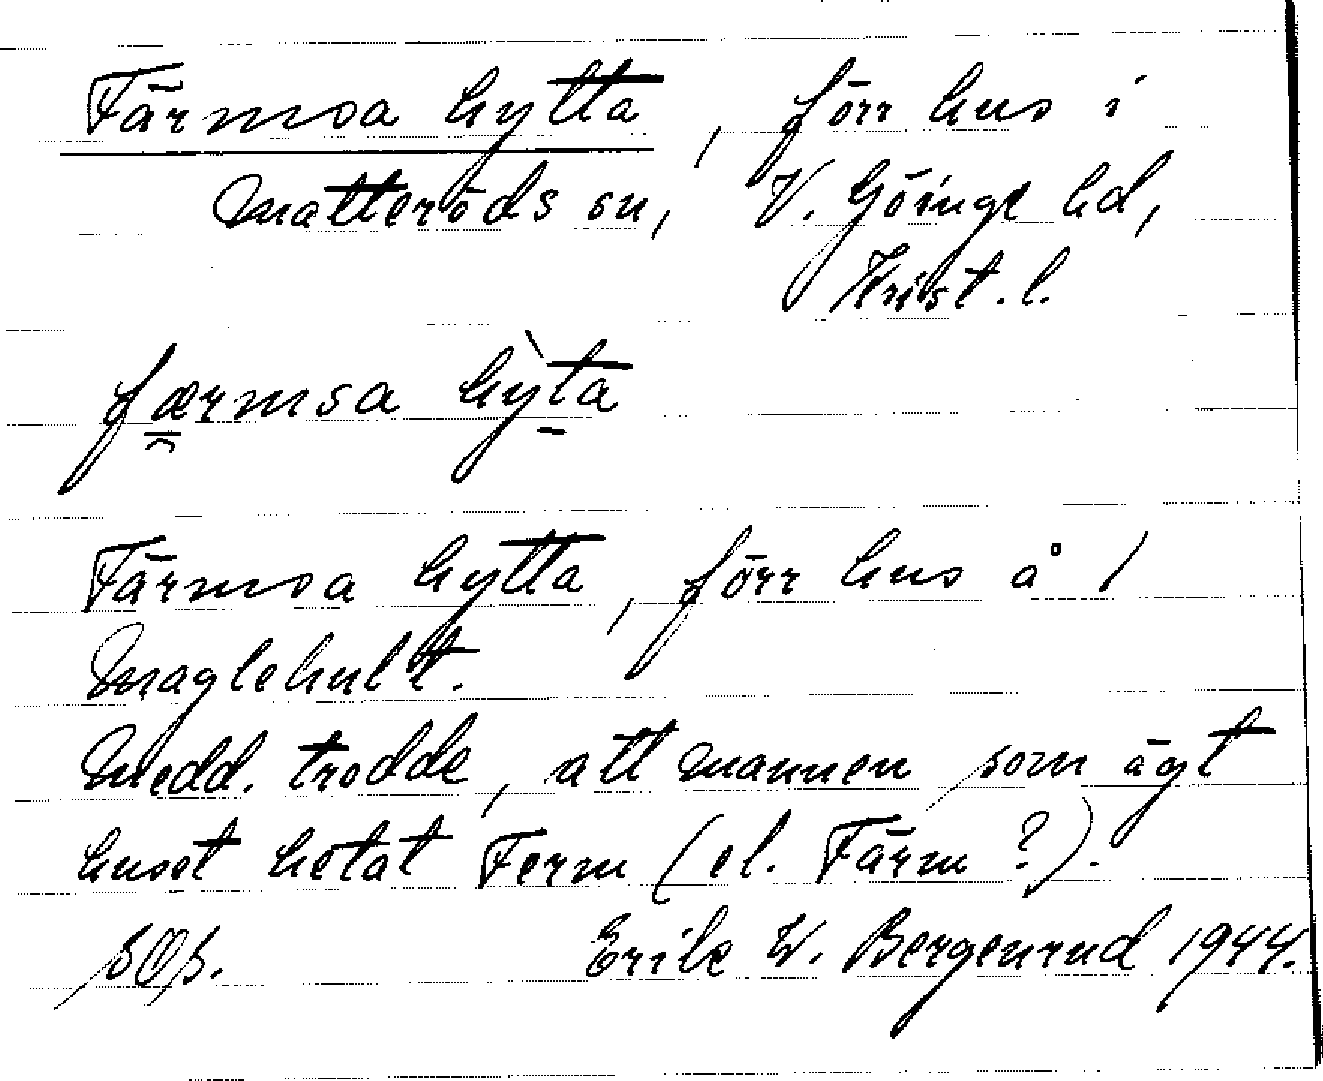 Färmsa hytta, förr hus i
Matteröds sn, V. Göinge hd,
Krist. l.
færmsa hỳta
Färmsa hytta, förr hus å 1
Maglehult.
Medd. trodde, att mannen som ägt
huset hetat Ferm (el. Färm ?).
Erik W. Bergenrud 1944.